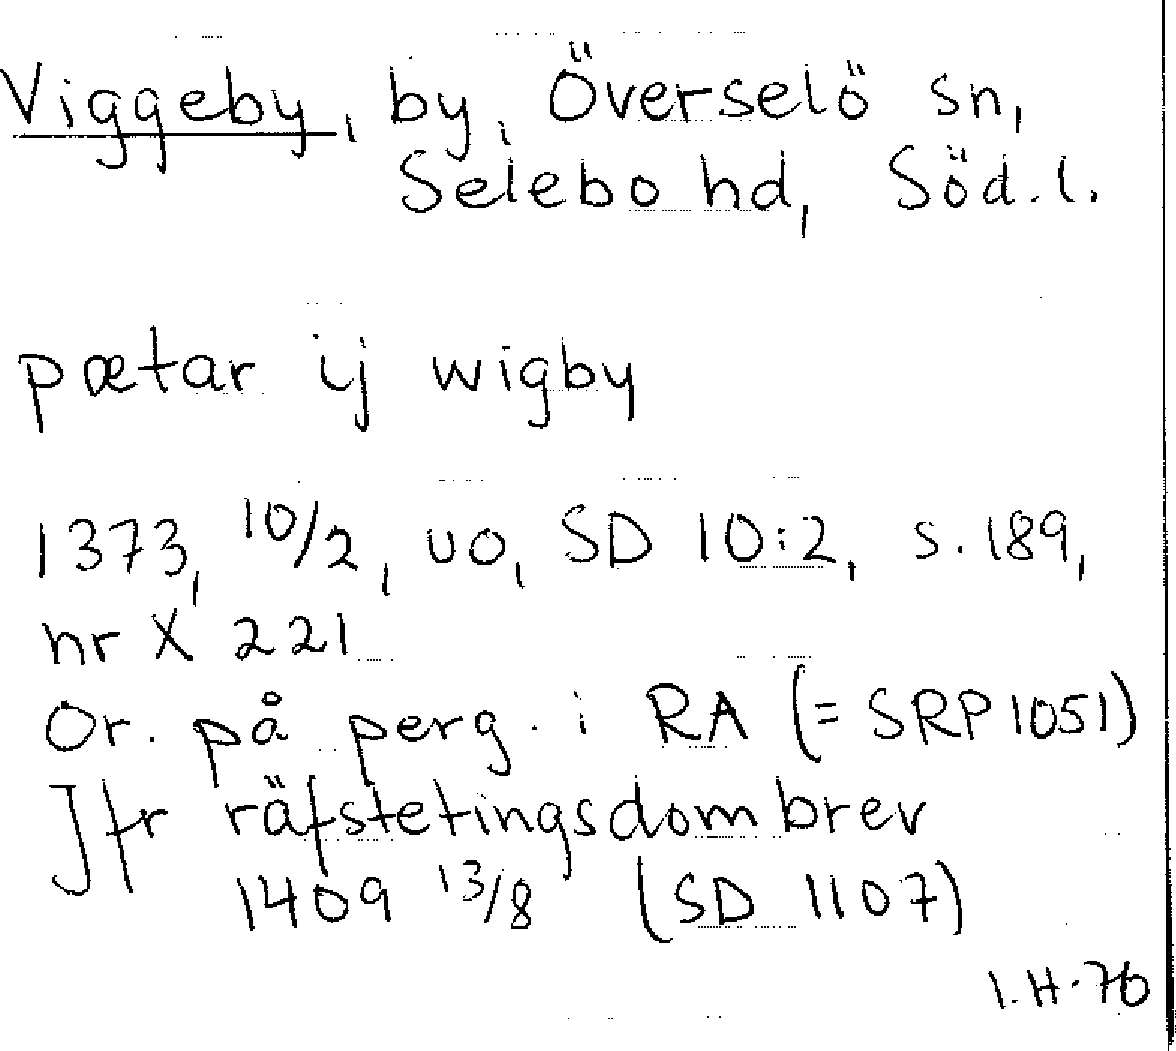 Viggeby, by, Överselö sn,
Selebo hd, Söd. l.
pætar ij wigby
1373, 10/2, uo, SD 10:2, s. 189,
nr X 221
Or. på perg. i RA (= SRP 1051)
Jfr räfstetingsdombrev
1409 13/8 (SD 1107)
I.H. 76